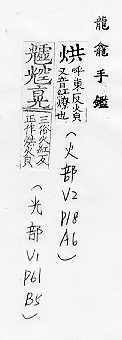 龍龕手鑑
烘
呼東反火皃
又音紅燎也
(火部 V2 P18 A6)
三俗火紅反
正作烘火皃
(光部 V1 P61 B5)